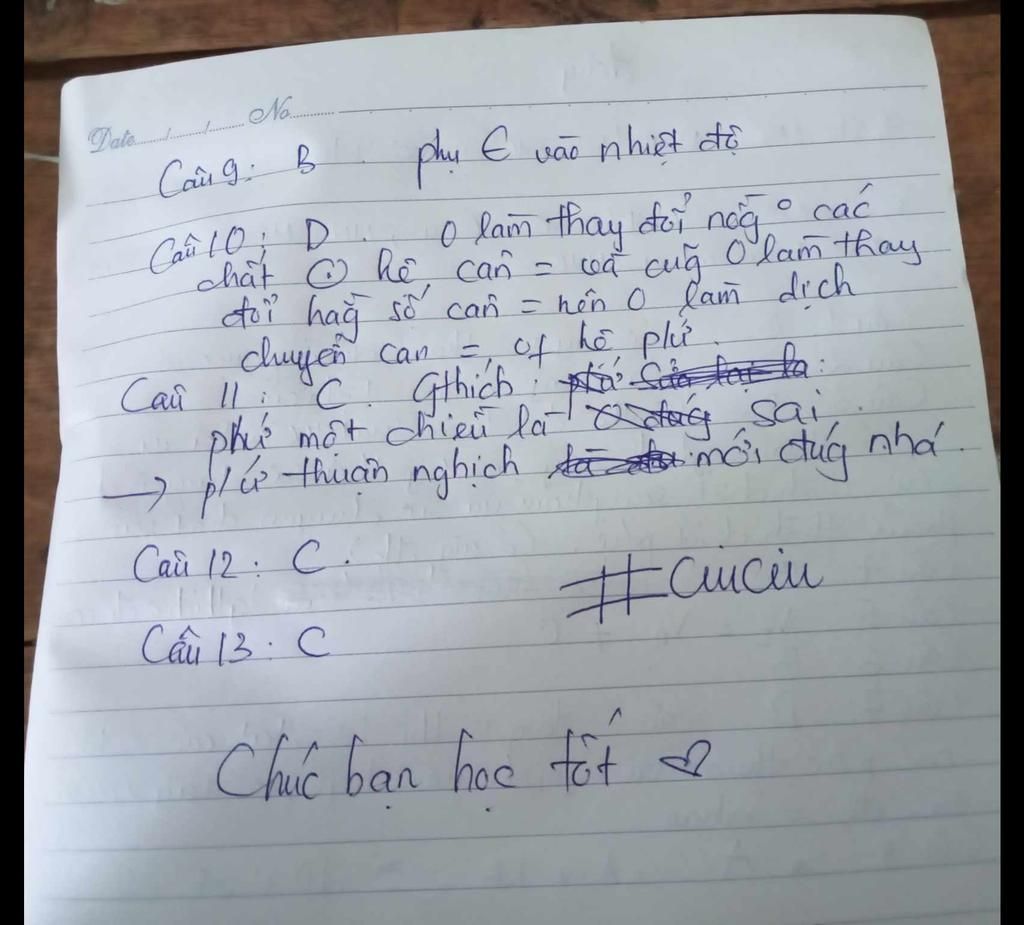 Date...../....../...... No..........
Câu 9: B. phụ ∈ vào nhiệt độ
Câu 10: D. 0 làm thay đổi nồg ° các
chất ⊙ hệ, cân = và cũg 0 làm thay
đổi hằg số cân = nên 0 làm dịch
chuyển cân = of hệ p/ứ.
Câu 11: C. Gthích:
p/ứ một chiều là sai.
→ p/ứ thuận nghịch mới đúg nhá.
Câu 12: C.
#ciuciu
Câu 13: C
Chúc bạn học tốt ♡